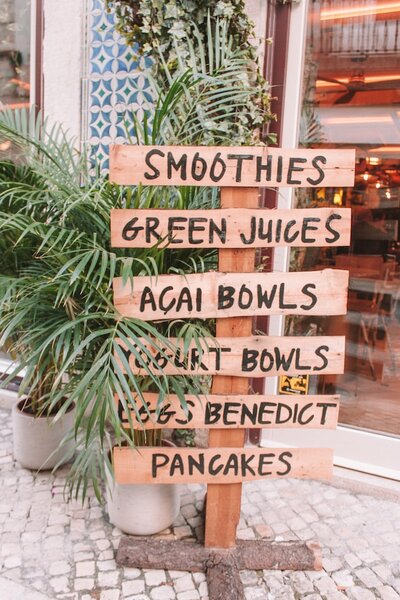 SMOOTHIES
GREEN JUICES
AÇAI BOWLS
YOGURT BOWLS
EGGS BENEDICT
PANCAKES